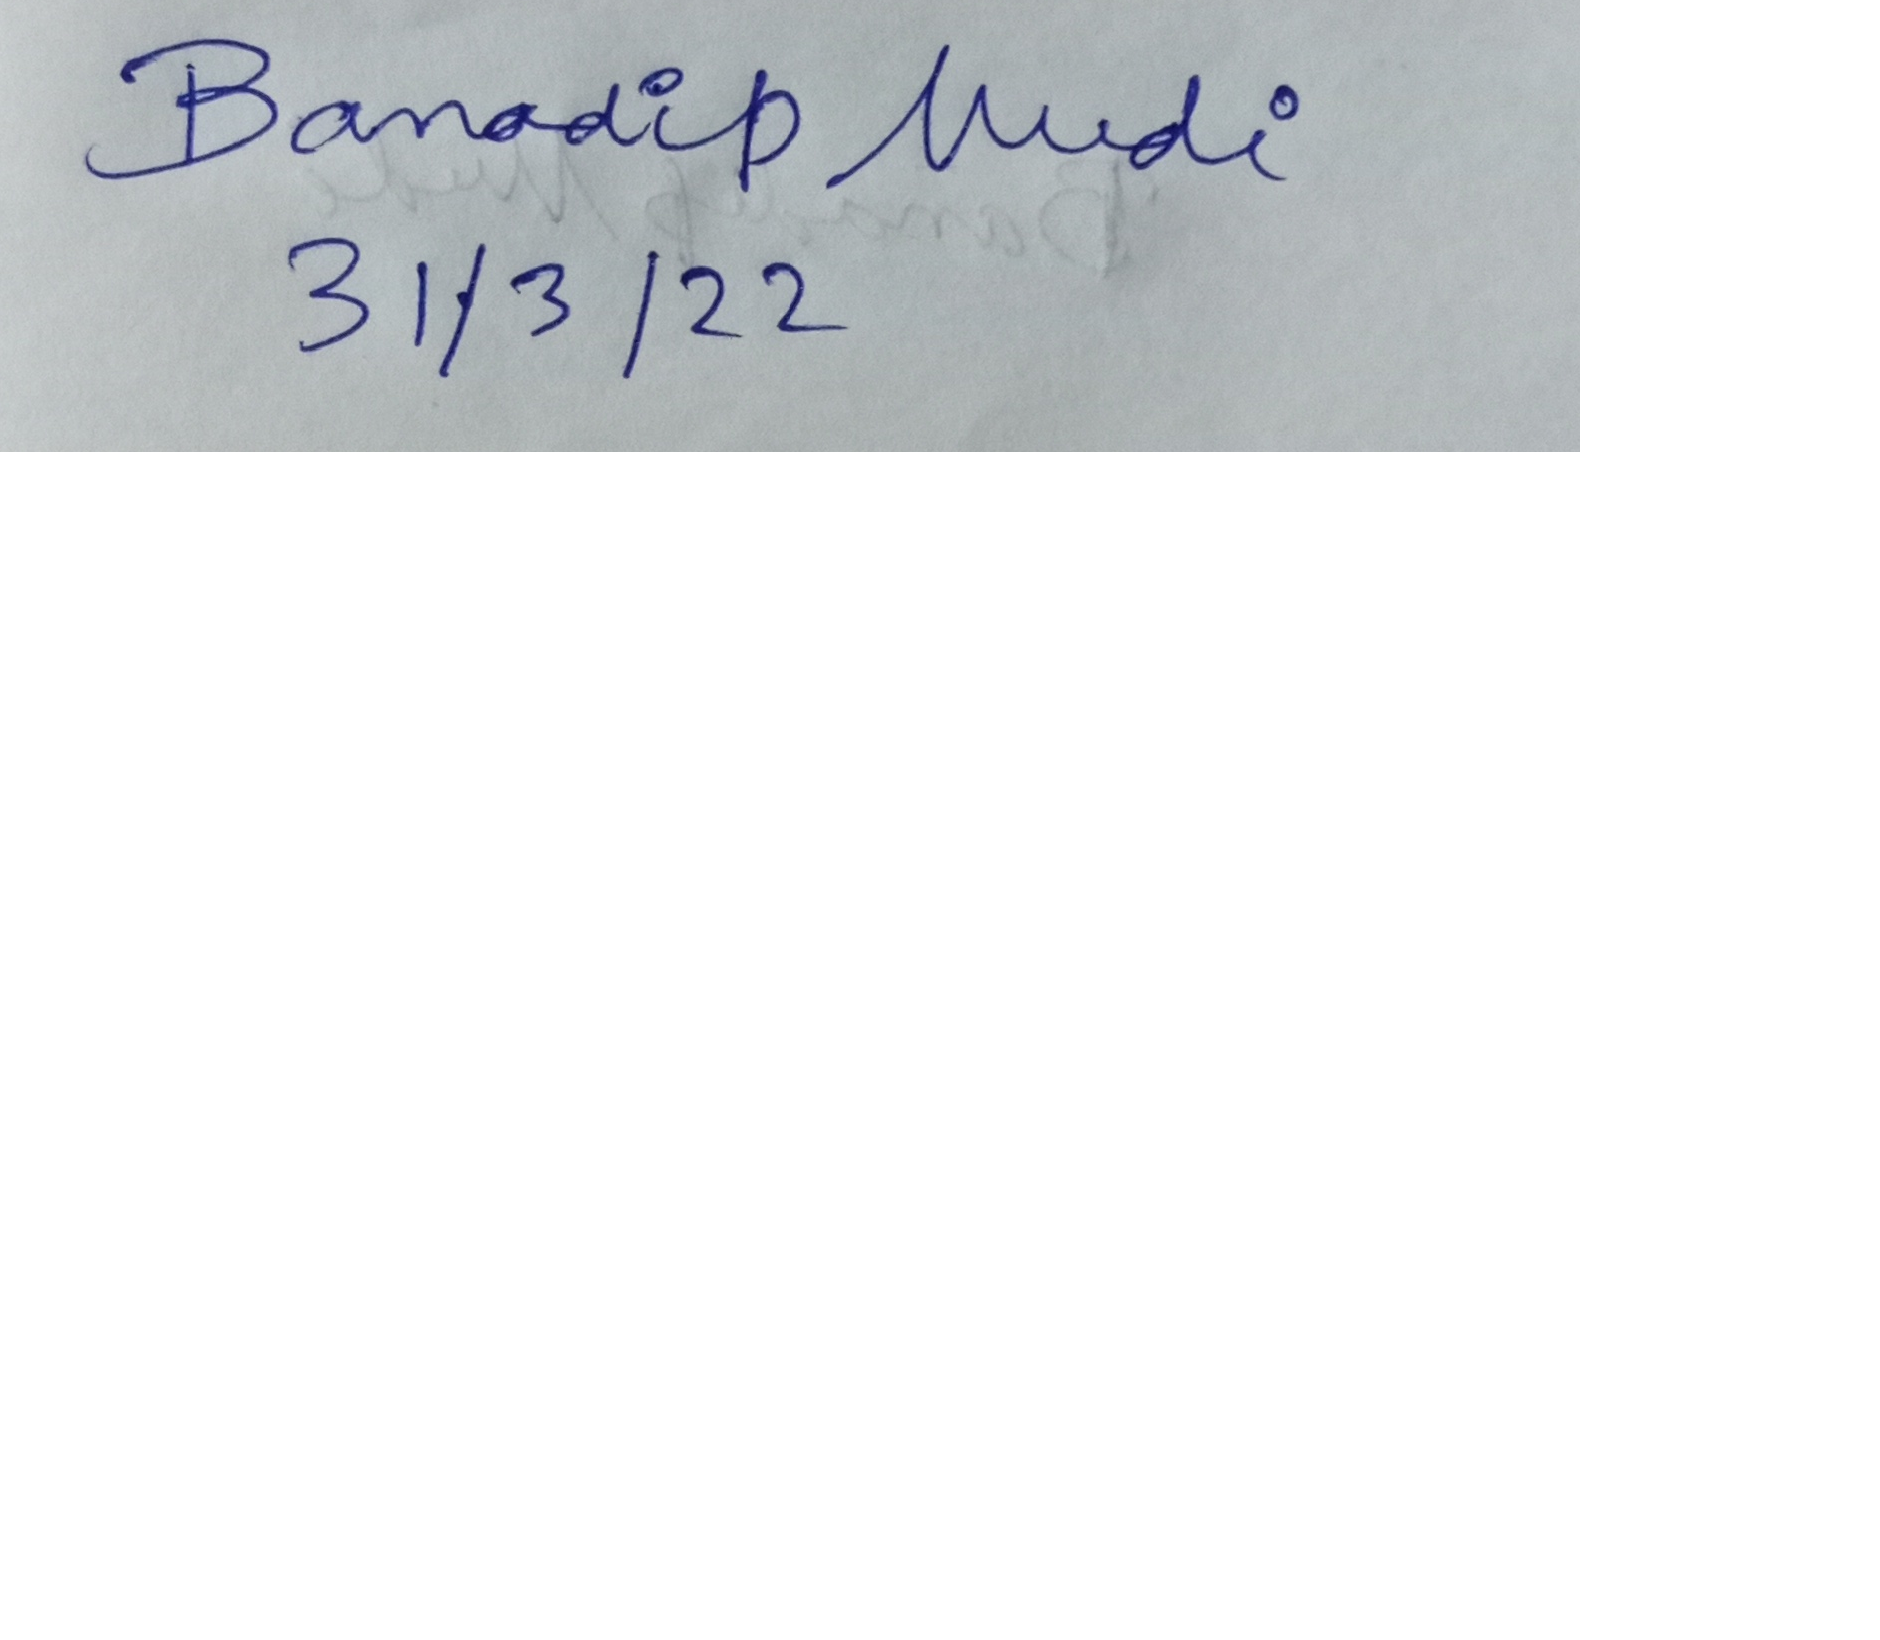 Banadip Mudi
31/3/22